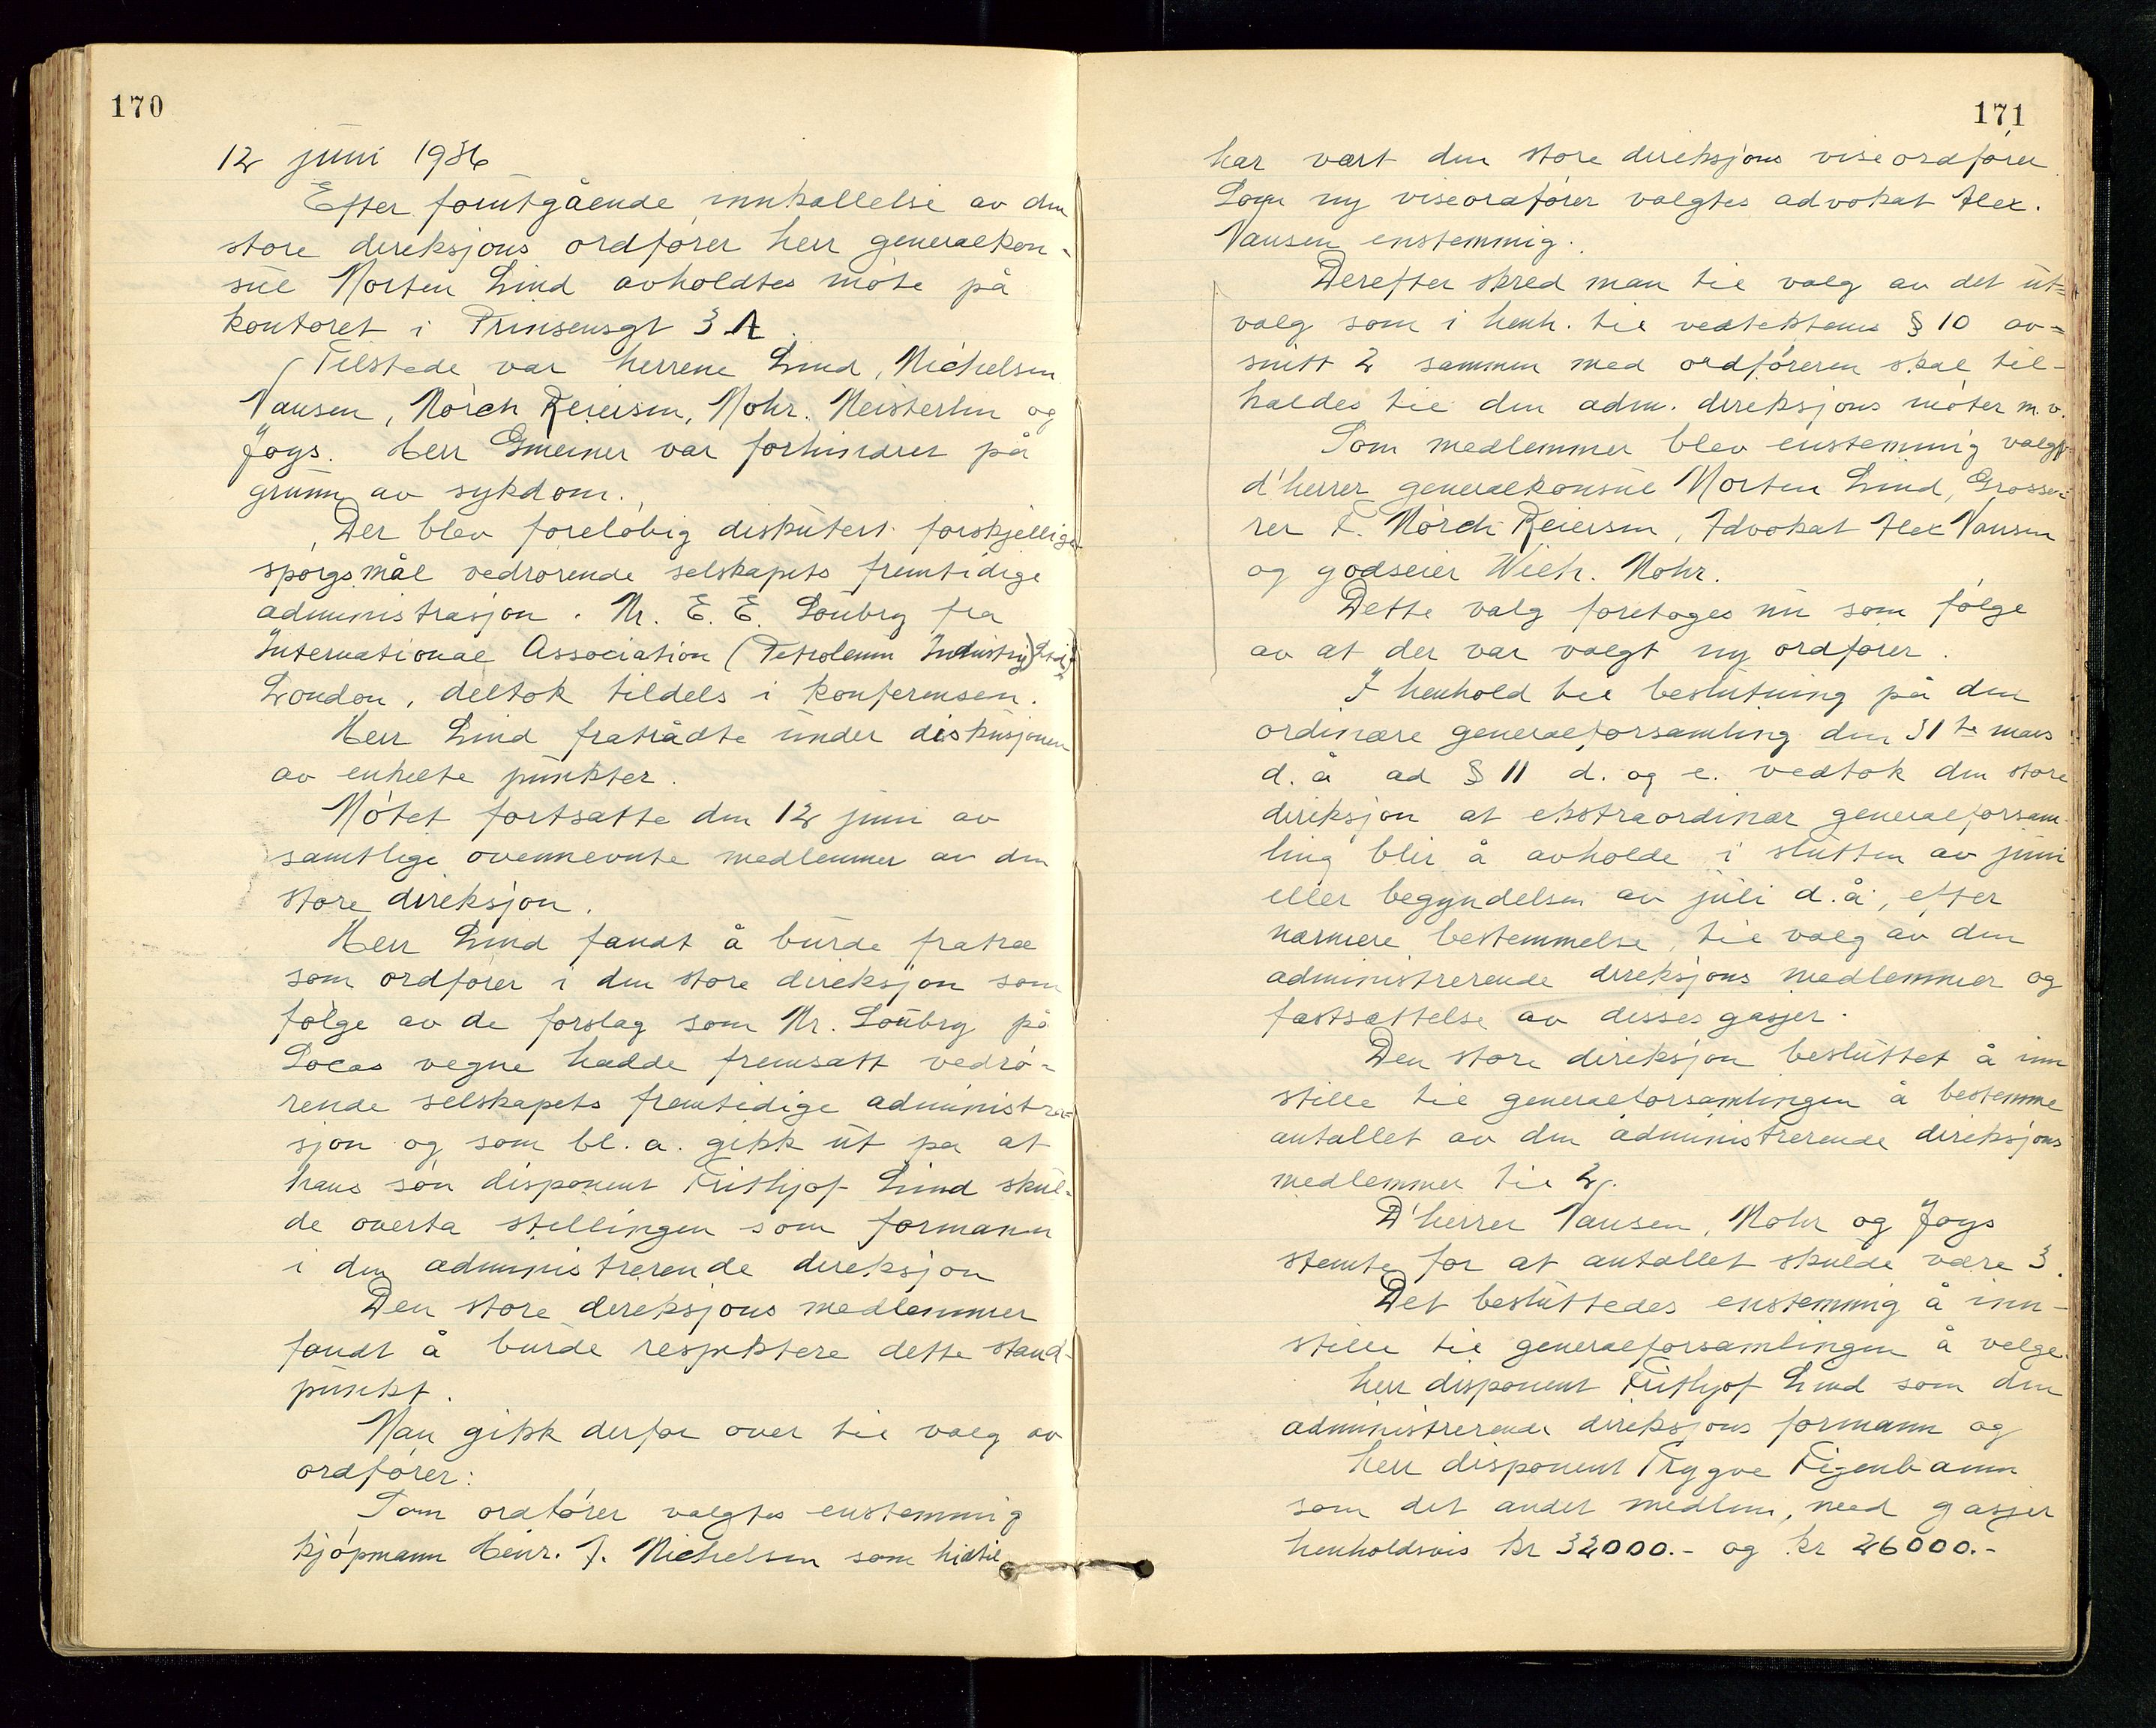 170
12 juni 1936
Efter forutgående innkallelse av den
store direksjons ordfører herr generalkon-
sul Morten Lind avholdtes møte på
kontoret i Prinsensgt 3 A.
Tilstede var herrene Lind, Michelsen
Nansen, Mørch Reiersen, Mohr. Meisterlin og
Joys. Herr Gmeiner var forhindret på
grunn av sykdom.
Der blev foreløbig diskutert forskjellige
spørgsmål vedrørende selskapets fremtidige
administrasjon. Mr. E. E. Soubry fra
International Association (Petroleum Industry) Ltd,
London, deltok tildels i konferensen.
Herr Lind fratrådte under diskusjonen
av enkelte punkter.
Møtet fortsatte den 12 juni av
samtlige ovennevnte medlemmer av den
store direksjon.
Herr Lind fandt å burde fratræ
som ordfører i den store direksjon som
følge av de forslag som Mr. Soubry på
Socas vegne hadde fremsatt vedrø-
rende selskapets fremtidige administra-
sjon og som bl. a. gikk ut pa at
hans søn disponent Frithjof Lind skul-
de overta stellingen som formann
i den administrerende direksjon
Den store direksjons medlemmer
fandt å burde respektere dette stand-
punkt.
Man gikk derfor over til valg av
ordfører:
Som ordfører valgtes enstemmig
kjøpmann Henr. J. Michelsen som hidtil
171
har vært den store direksjons viseordfører
Som ny viseordfører valgtes advokat Alex.
Nansen enstemmig.
Derefter skred man til valg av det ut-
valg som i henh. til vedtektenes § 10 av-
snitt 2 sammen med ordføreren skal til-
kaldes til den adm. direksjons møter m.v.
Som medlemmer blev enstemmig valgt
d'herrer generalkonsul Morten Lind, Grosse-
rer F. Mørch Reiersen, Advokat Alex Nansen
og godseier Wilh. Mohr.
Dette valg foretoges nu som følge
av at der var valgt ny ordfører.
I henhold til beslutning på den
ordinære generalforsamling den 31te mars
d. å ad § 11 d. og e. vedtok den store
direksjon at ekstraordinær generalforsam-
ling blir å avholde i slutten av juni
eller begyndelsen av juli d.å, efter
nærmere bestemmelse, til valg av den
administrerende direksjons medlemmer og
fastsættelse av disses gasjer.
Den store direksjon besluttet å inn
stille til generalforsamlingen å bestemme
antallet av den administrerende direksjons
medlemmer til 2.
D'herrer Nansen, Mohr og Joys
stemte for at antallet skulde være 3.
Det besluttedes enstemmig å inn-
stille til generalforsamlingen å velge
herr disponent Frithjof Lind som den
administrerende direksjons formann og
herr disponent Trygve Figenbaum
som det andet medlem, med gasjer
henholdsvis kr 32000.- og kr 26000.-